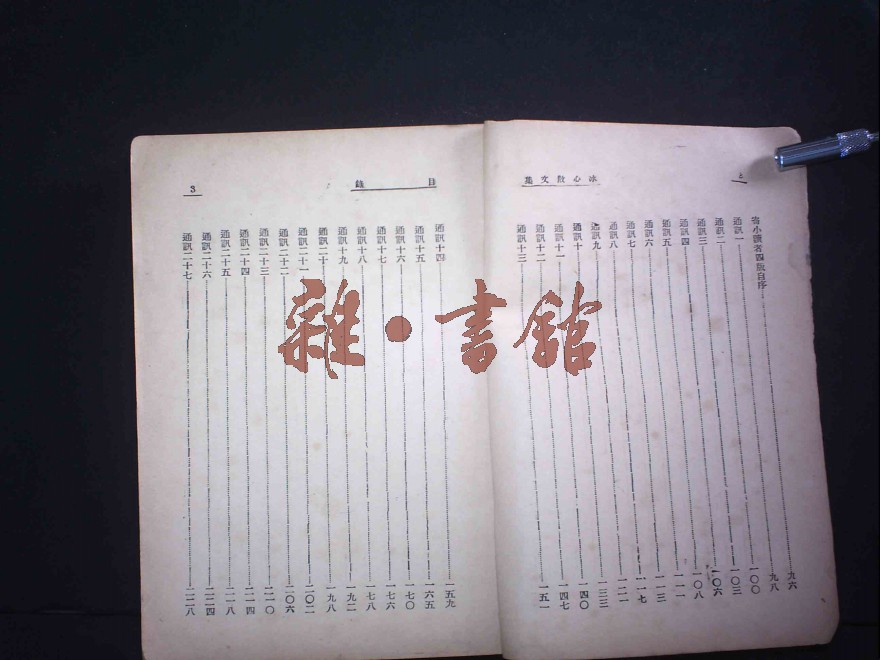 冰心散文集
寄小讀者四版自序 九六
通訊一 九八
通訊二 一〇〇
通訊三 一〇三
通訊四 一〇六
通訊五 一〇八
通訊六 一一一
通訊七 一一三
通訊八 一一七
通訊九 一二一
通訊十 一三三
通訊十一 一四〇
通訊十二 一四七
通訊十三 一五一
目錄
3
通訊十四 一五九
通訊十五 一六五
通訊十六 一七〇
通訊十七 一七六
通訊十八 一七八
通訊十九 一九二
通訊二十 一九八
通訊二十一 二〇二
通訊二十二 二〇六
通訊二十三 二一〇
通訊二十四 二一四
通訊二十五 二一八
通訊二十六 二二四
通訊二十七 二二八
雜·書館